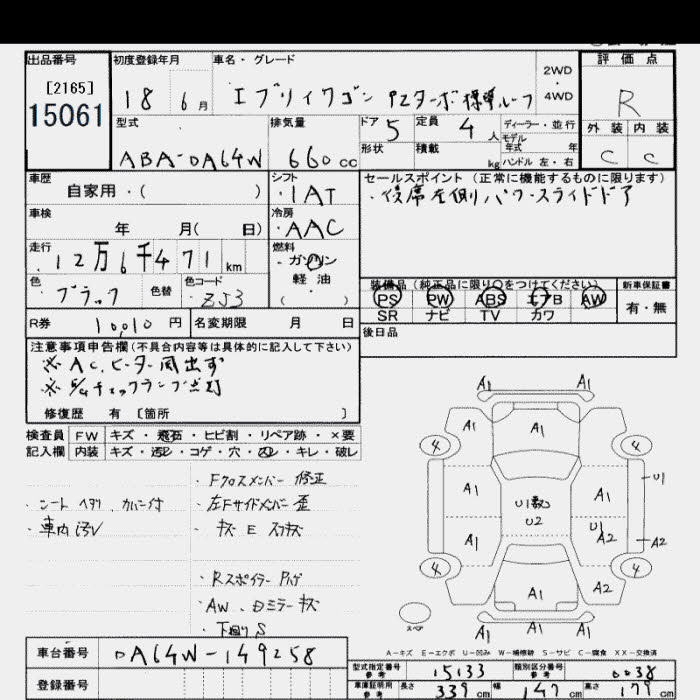 出品番号
[2165]
15061
初度登録年月
18 6 月
車名・グレード
エブリィワゴン PZターボ 標準ルーフ
2WD
4WD
評価点
R
外装 内装
C C
型式
ABA-DA64W
排気量
660 cc
ドア 5
定員 4 人
形状
積載 kg
ディーラー・並行
モデル
年式 年
ハンドル 左・右
車歴
自家用・( )
シフト
・IAT
車検
年 月( 日)
冷房
・AAC
走行
・12万6千471 km
燃料
・ガソリン
軽油
・( )
色
・ブラック
色替
色コード
・ZJ3
セールスポイント (正常に機能するものに限ります)
・後席左側パワースライドドア
装備品 (純正品に限り〇をつけてください)
PS PW ABS エアB AW
SR ナビ TV カワ
新車保証書
有・無
後日品
R券 10,010 円
名変期限 月 日
注意事項申告欄(不具合内容等は具体的に記入して下さい)
※ AC,ヒーター風出ず
※ E/gチェックランプ点灯
修復歴 有 [箇所 ]
検査員 FW キズ・飛石・ヒビ割・リペア跡・×要
記入欄 内装 キズ・汚レ・コゲ・穴・凹レ・キレ・破レ
・シート ヘタリ、カバー付
・車内汚レ
・Fクロスメンバー 修正
・左Fサイドメンバー 歪
・キズ E スリキズ
・Rスポイラー
・AW、ミラーキズ
・下廻りS
A1 A1
A1 A1
4 4
A1 A1 U1
U1数
U2
A1 U1 A2 A2
4 4
A1 A2
A1 A1 A1
スペア
A-キズ E-エクボ U-凹み W-補修跡 S-サビ C-腐食 XX-交換済
車台番号
DA64W-149258
登録番号
型式指定番号
参考
15133
類別区分番号
参考
0038
車庫証明用
参考
長さ 339 cm
幅 147 cm
高さ cm